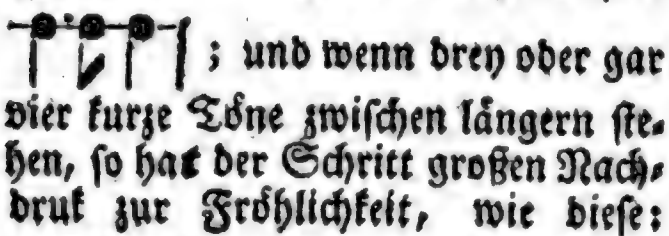 ; und wenn drey oder gar
vier kurze Töne zwischen längern ste-
hen, so hat der Schritt großen Nach-
druk zur Fröhlichkeit, wie diese: